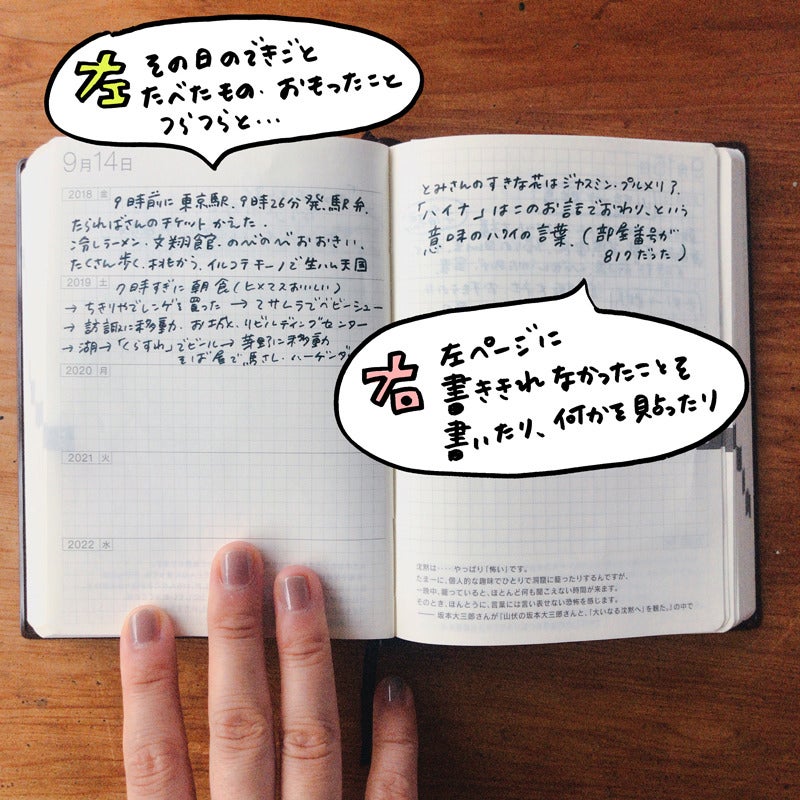 左 その日のできごと
たべたもの・おもったこと
つらつらと…
9月14日
2018 金
9時前に東京駅、9時26分発、駅弁、
たらればさんのチケットかえた。
冷しラーメン・文翔館・のべのべおおきい、
たくさん歩く、おもかう、イルコテキーノで生ハム天国
2019 土
7時すぎに朝食(ヒメマスおいしい)
→ ちきりやでレンゲを買った → てサムラでベビーシュー
→ 諏訪に移動・お城・リビルディングセンター
→湖→「くらすわ」でビール→茅野に移動
そば屋で馬さし・ハーゲンダ
2020 月
2021 火
2022 水
とみさんのすきな花はジャスミン・プルメリア、
「ハイナ」はこのお話でおわり、という
意味のハワイの言葉、(部屋番号が
817だった)
右 左ページに
書ききれなかったことを
書いたり、何かを貼ったり
沈黙は‥‥やっぱり「怖い」です。
たまーに、個人的な趣味でひとりで洞窟に籠ったりするんですが、
一晩中、籠っていると、ほとんど何も聞こえない時間が来ます。
そのとき、ほんとうに、言葉には言い表せない恐怖を感じます。
―― 坂本大三郎さんが『山伏の坂本大三郎さんと、「大いなる沈黙へ」を観た。』の中で